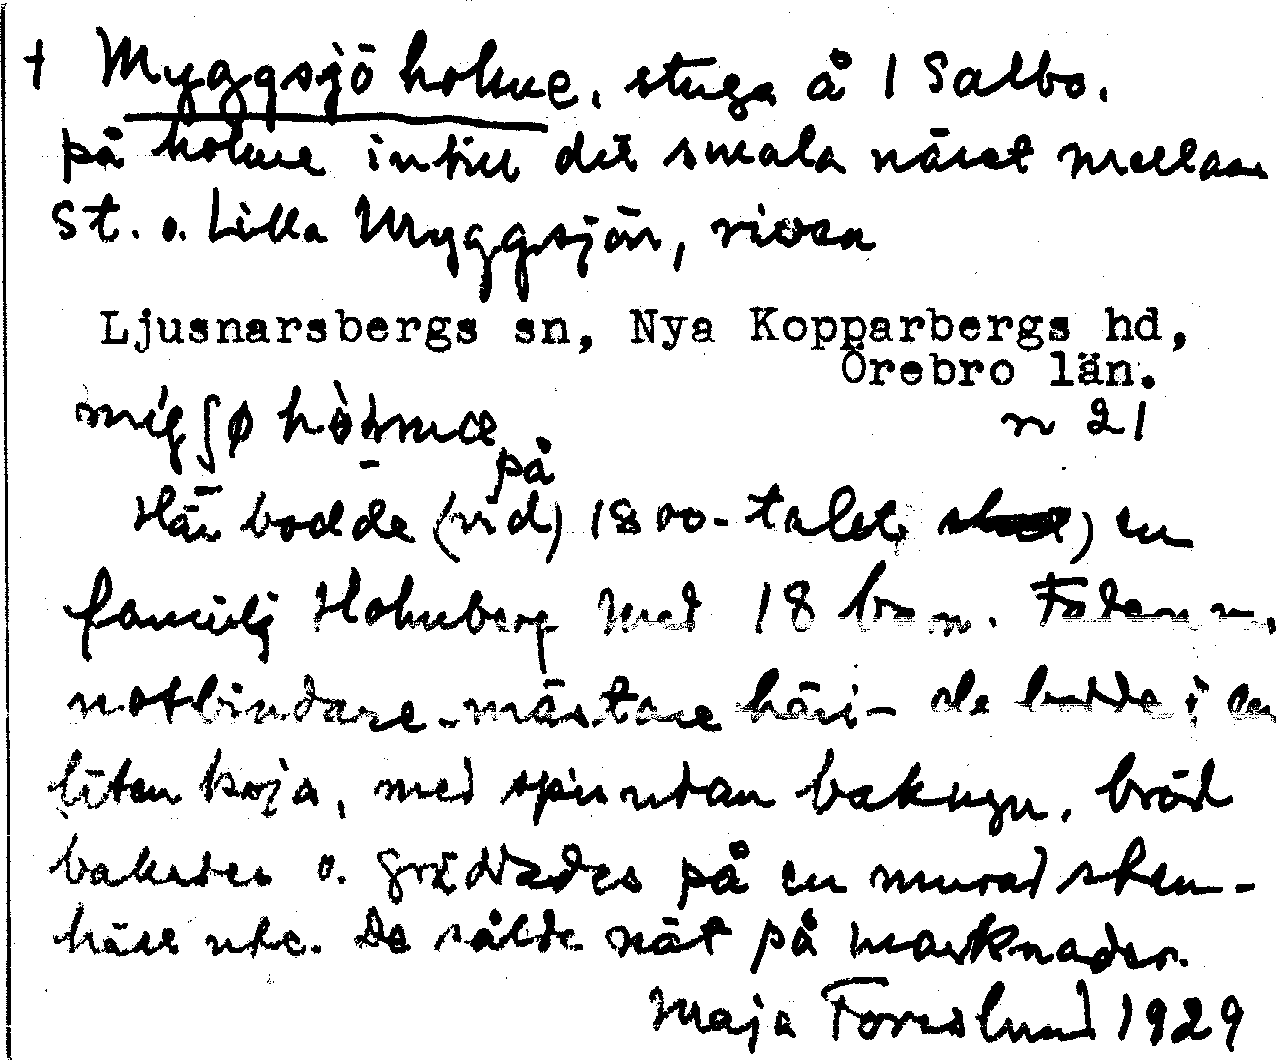 † Myggsjöholme, stuga å 1 Salbo.
på holme intill det smala näset mellan
St. o. Lilla Myggsjön, rivna
Ljusnarsbergs sn, Nya Kopparbergs hd,
Örebro län.
n 21
på
Här bodde (vid) 1800-talet ) en
familj Holmberg med 18 barn. Fadern v.
notbindare-mästare här – de bodde i en
liten koja, med spis utan bakugn. bröd
bakades o. gräddades på en murad sten-
häll ute. De sålde nät på marknader.
Maja Forsslund 1929